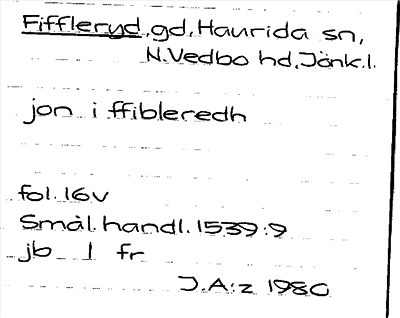 Fiffleryd, gd, Haurida sn,
N. Vedbo hd, Jönk. l.
jon i ffibleredh
fol. 16v
Smål. handl. 1539:9
jb 1 fr
J.A:z 1980